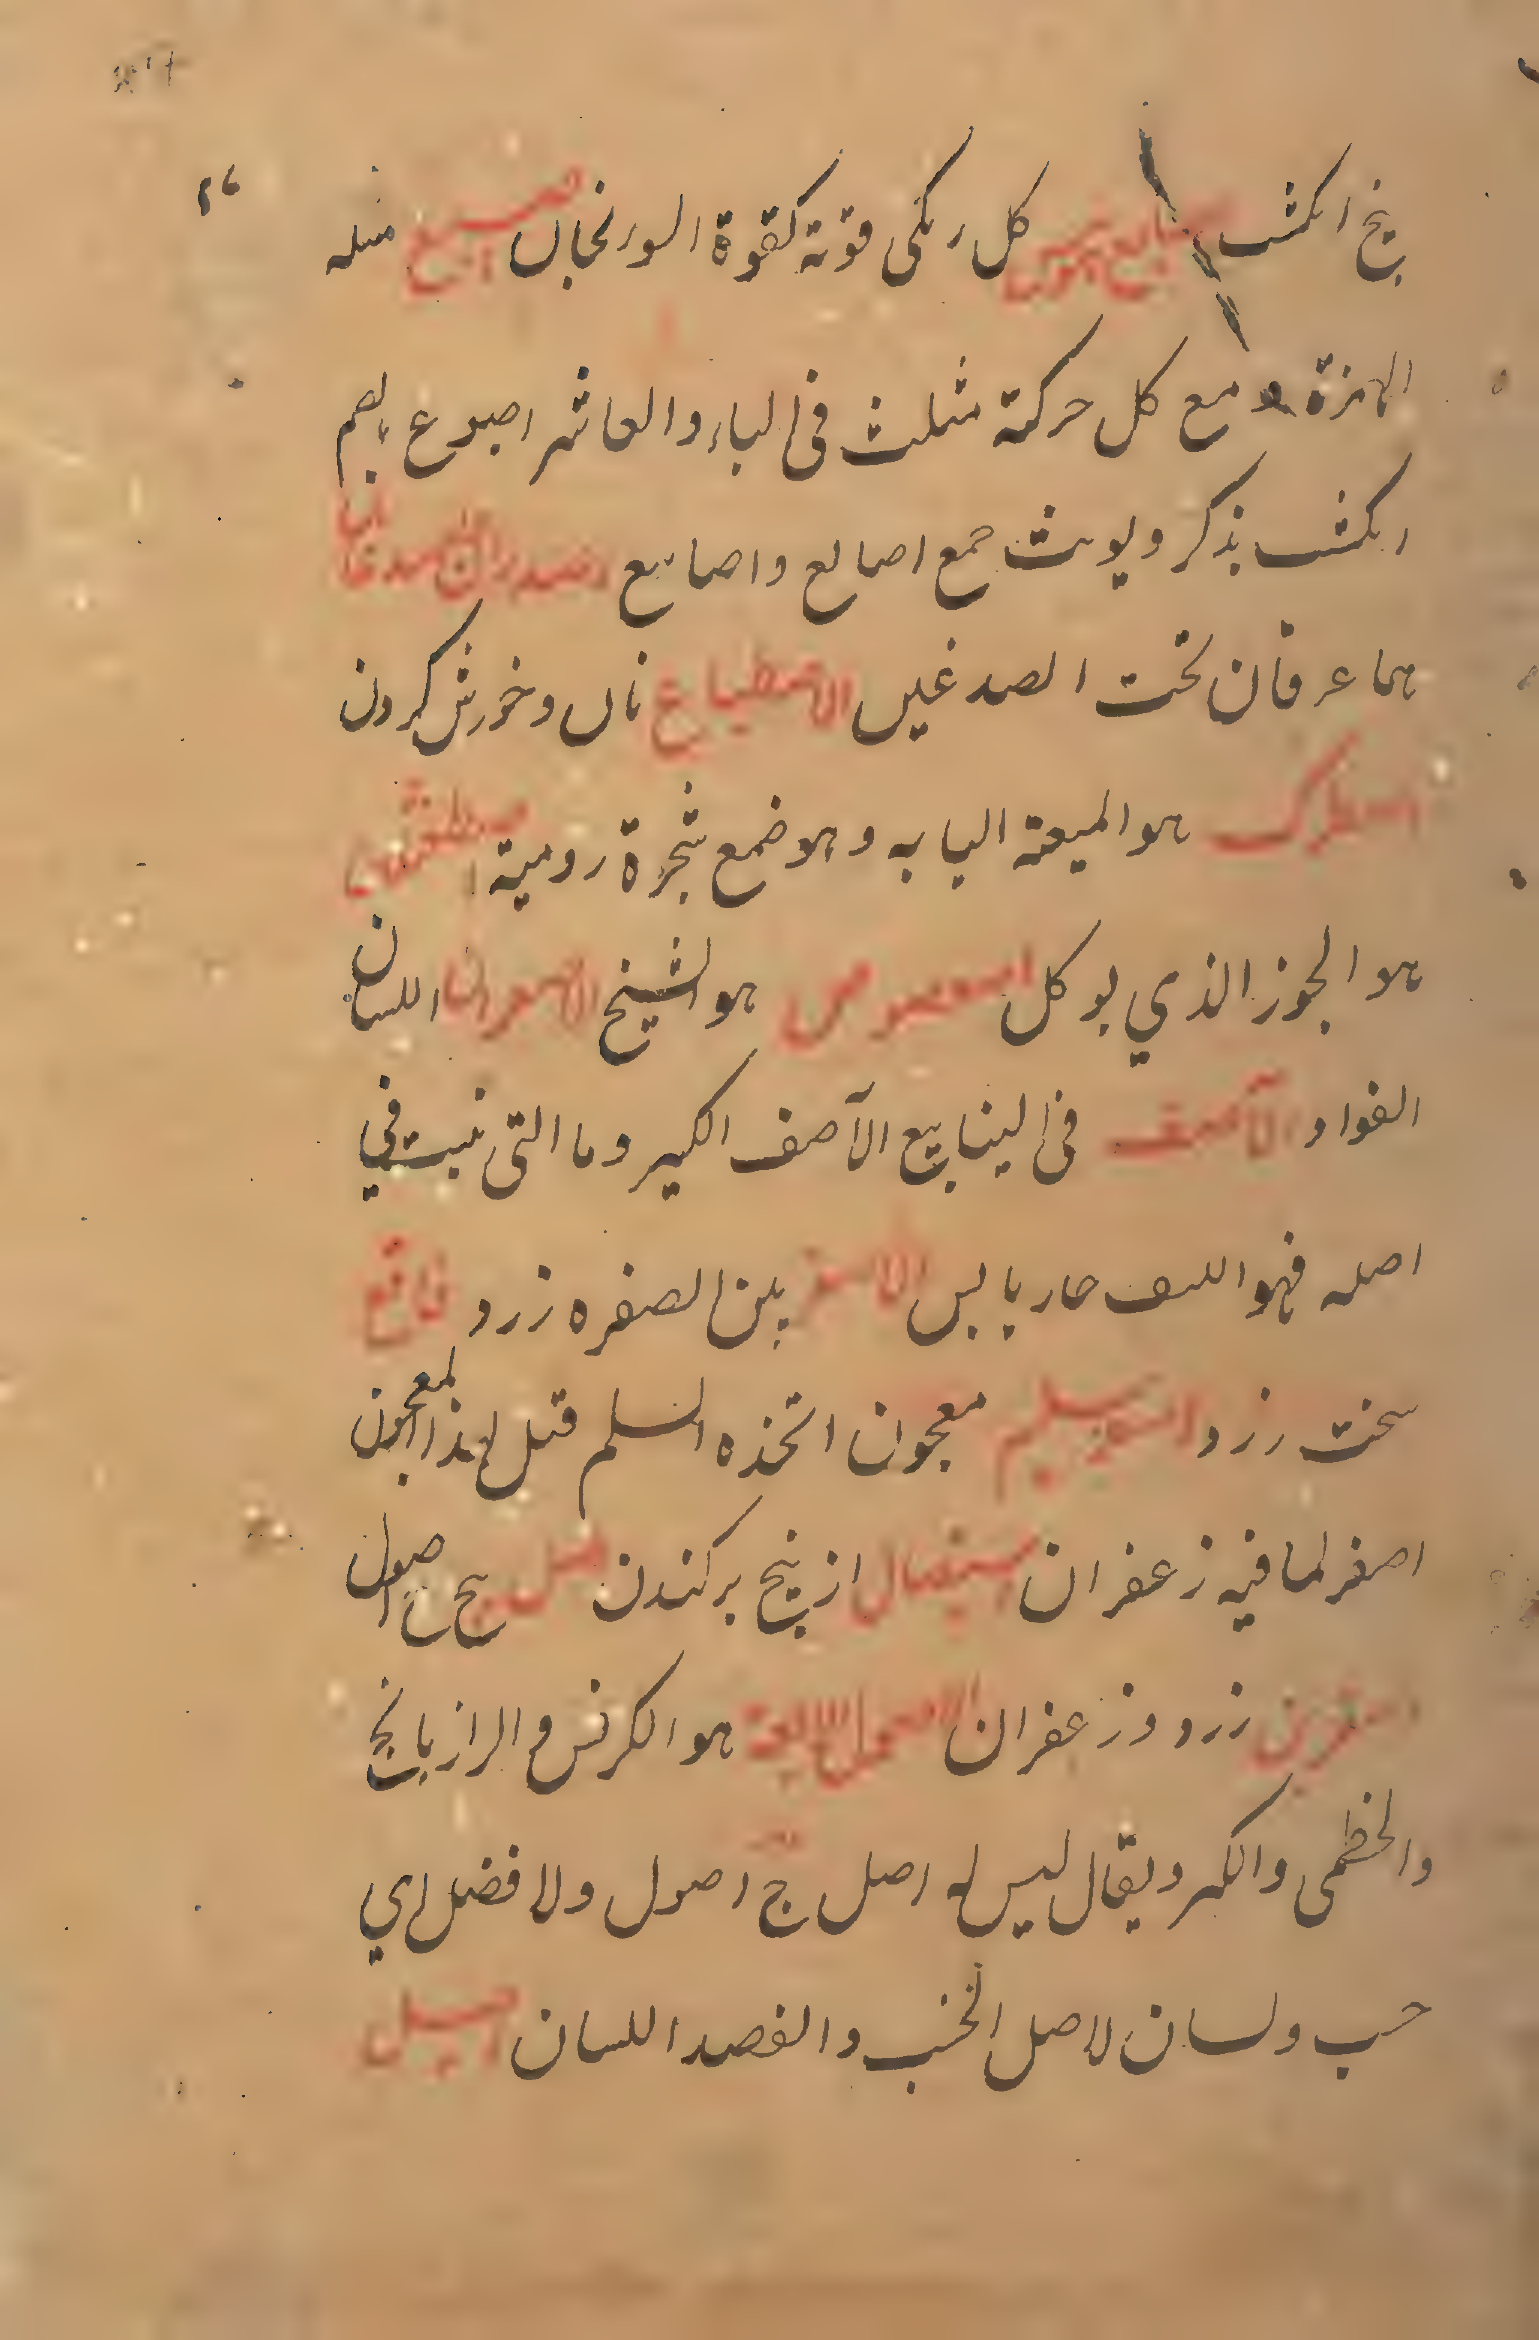 بيخ انكشت اصابع هرمس كل رنكى قوته كقوة السورنجان اصبع مثله
الهمزة و مع كل حركة مثلث فى الباء والعاشر اصبوع بالضم
انكشت يذكر ويونث جمع اصابع واصابيع اصدران الاصدغان
هما عرقان تحت الصدغين الاصطباغ نان وخورش كردن
اصطرك هو الميعة اليابسه وهو ضمع شجرة رومية
هو الجوز الذي يوكل هو الشيخ الاصغران اللسان
الفواد الآصف فى الينابيع الآصف الكبر وما التى نبت في
اصله فهو اللصف حار يابس الاصفر بين الصفره زرد فاقع
سخت زرد اصفر سليم معجون اتخذه السلم قيل لهذا المعجون
اصفر لما فيه زعفران استيصال از بيخ بركندن اصل بيخ ج اصول
اصفرين زرد و زعفران الاصول الاربعة هو الكرفس و الرازيانج
والخطمى والكبر ويقال ليس له اصل ج اصول ولا فضل اي
حسب ولسان لاصل الحسب والفصد اللسان اصيل